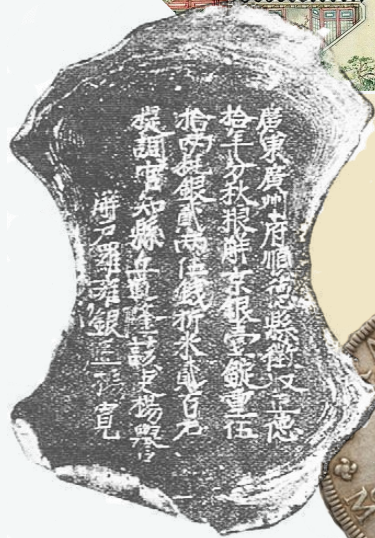 廣東廣州府順德縣徵收正德
拾年分秋粮解京銀壹錠重伍
拾兩 銀貳兩 錢折米貳百石
提調官知縣 該吏楊
解戶羅雍銀匠 寬
M